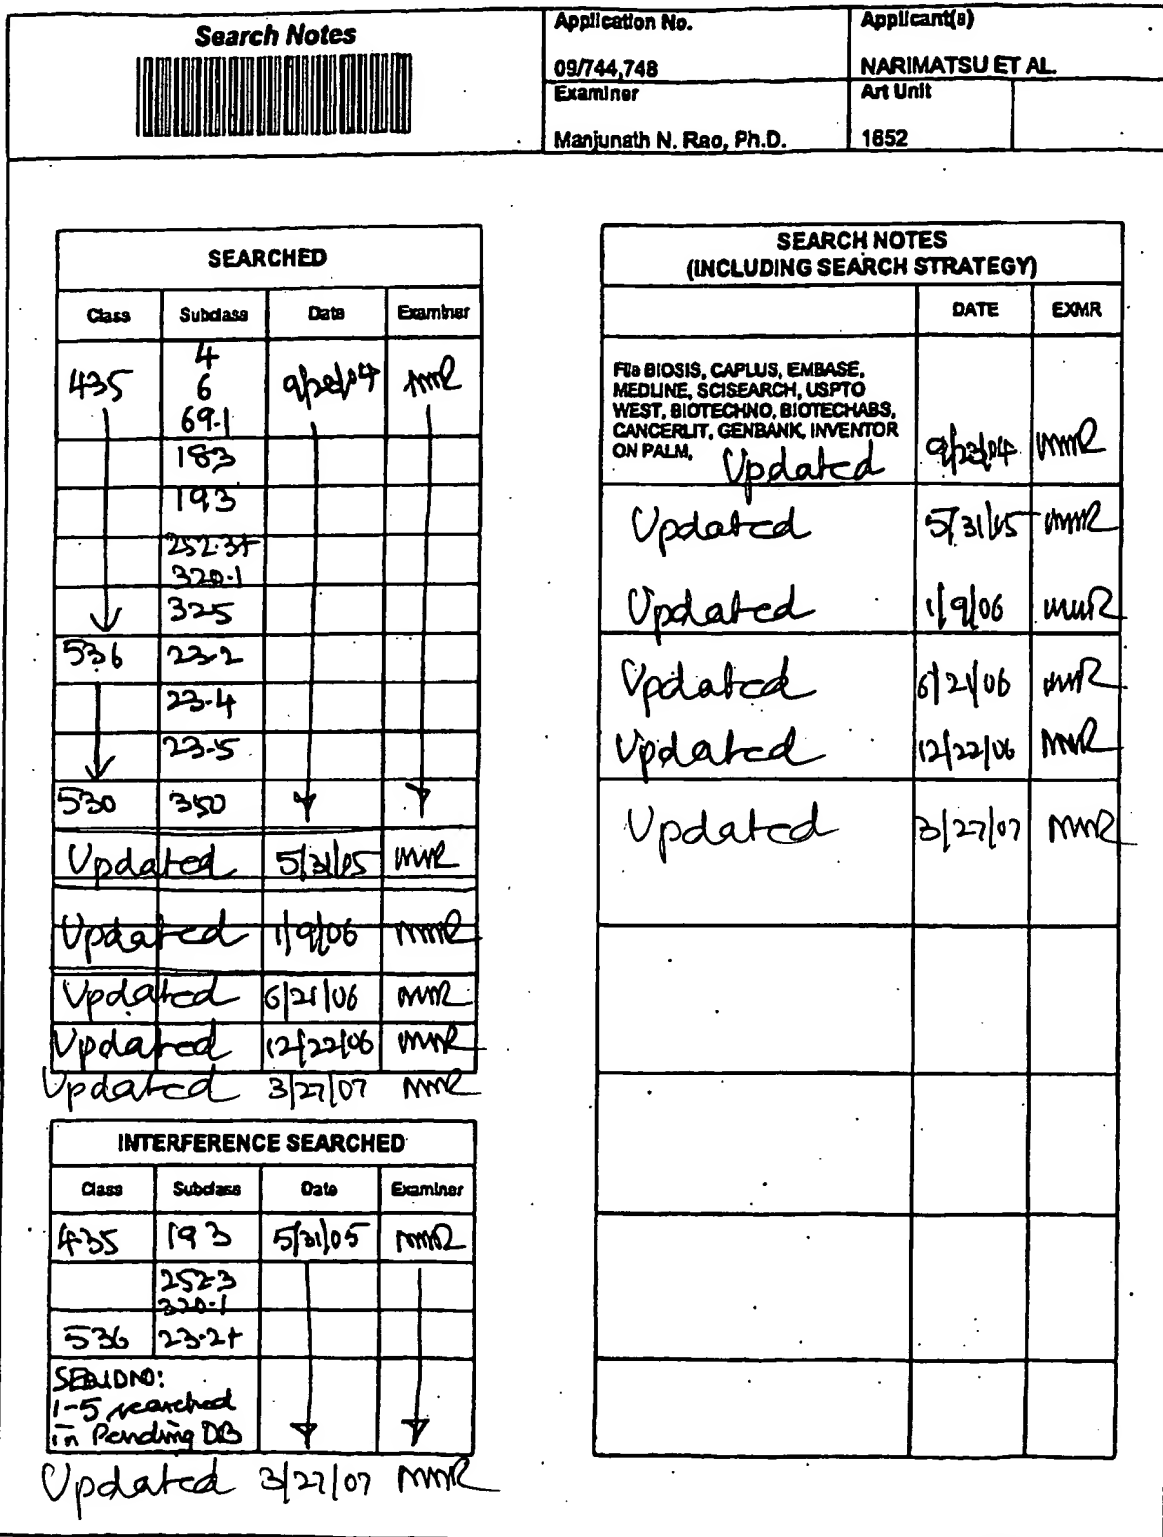 Search Notes
Application No.
09/744,748
Applicant(s)
NARIMATSU ET AL.
Examiner
Manjunath N. Rao, Ph.D.
Art Unit
1652
SEARCHED
Class Subclass Date Examiner
435 4 MNR
6
69.1
183
193
252.3+
320.1
325
536 23.2
23.4
23.5
530 350
Updated 5/31/05 MNR
Updated 1/9/06 MNR
Updated 6/21/06 MNR
Updated 12/22/06 MNR
Updated 3/27/07 MNR
INTERFERENCE SEARCHED
Class Subclass Date Examiner
435 193 5/31/05 MNR
252.3
320.1
536 23.2+
SEQ ID NO:
1-5 searched
in Pending DB
Updated 3/27/07 MNR
SEARCH NOTES
(INCLUDING SEARCH STRATEGY)
DATE EXMR
File BIOSIS, CAPLUS, EMBASE,
MEDLINE, SCISEARCH, USPTO
WEST, BIOTECHNO, BIOTECHABS,
CANCERLIT, GENBANK, INVENTOR
ON PALM, Updated 9/23/04 MNR
Updated 5/31/05 MNR
Updated 1/9/06 MNR
Updated 6/21/06 MNR
Updated 12/22/06 MNR
Updated 3/27/07 MNR